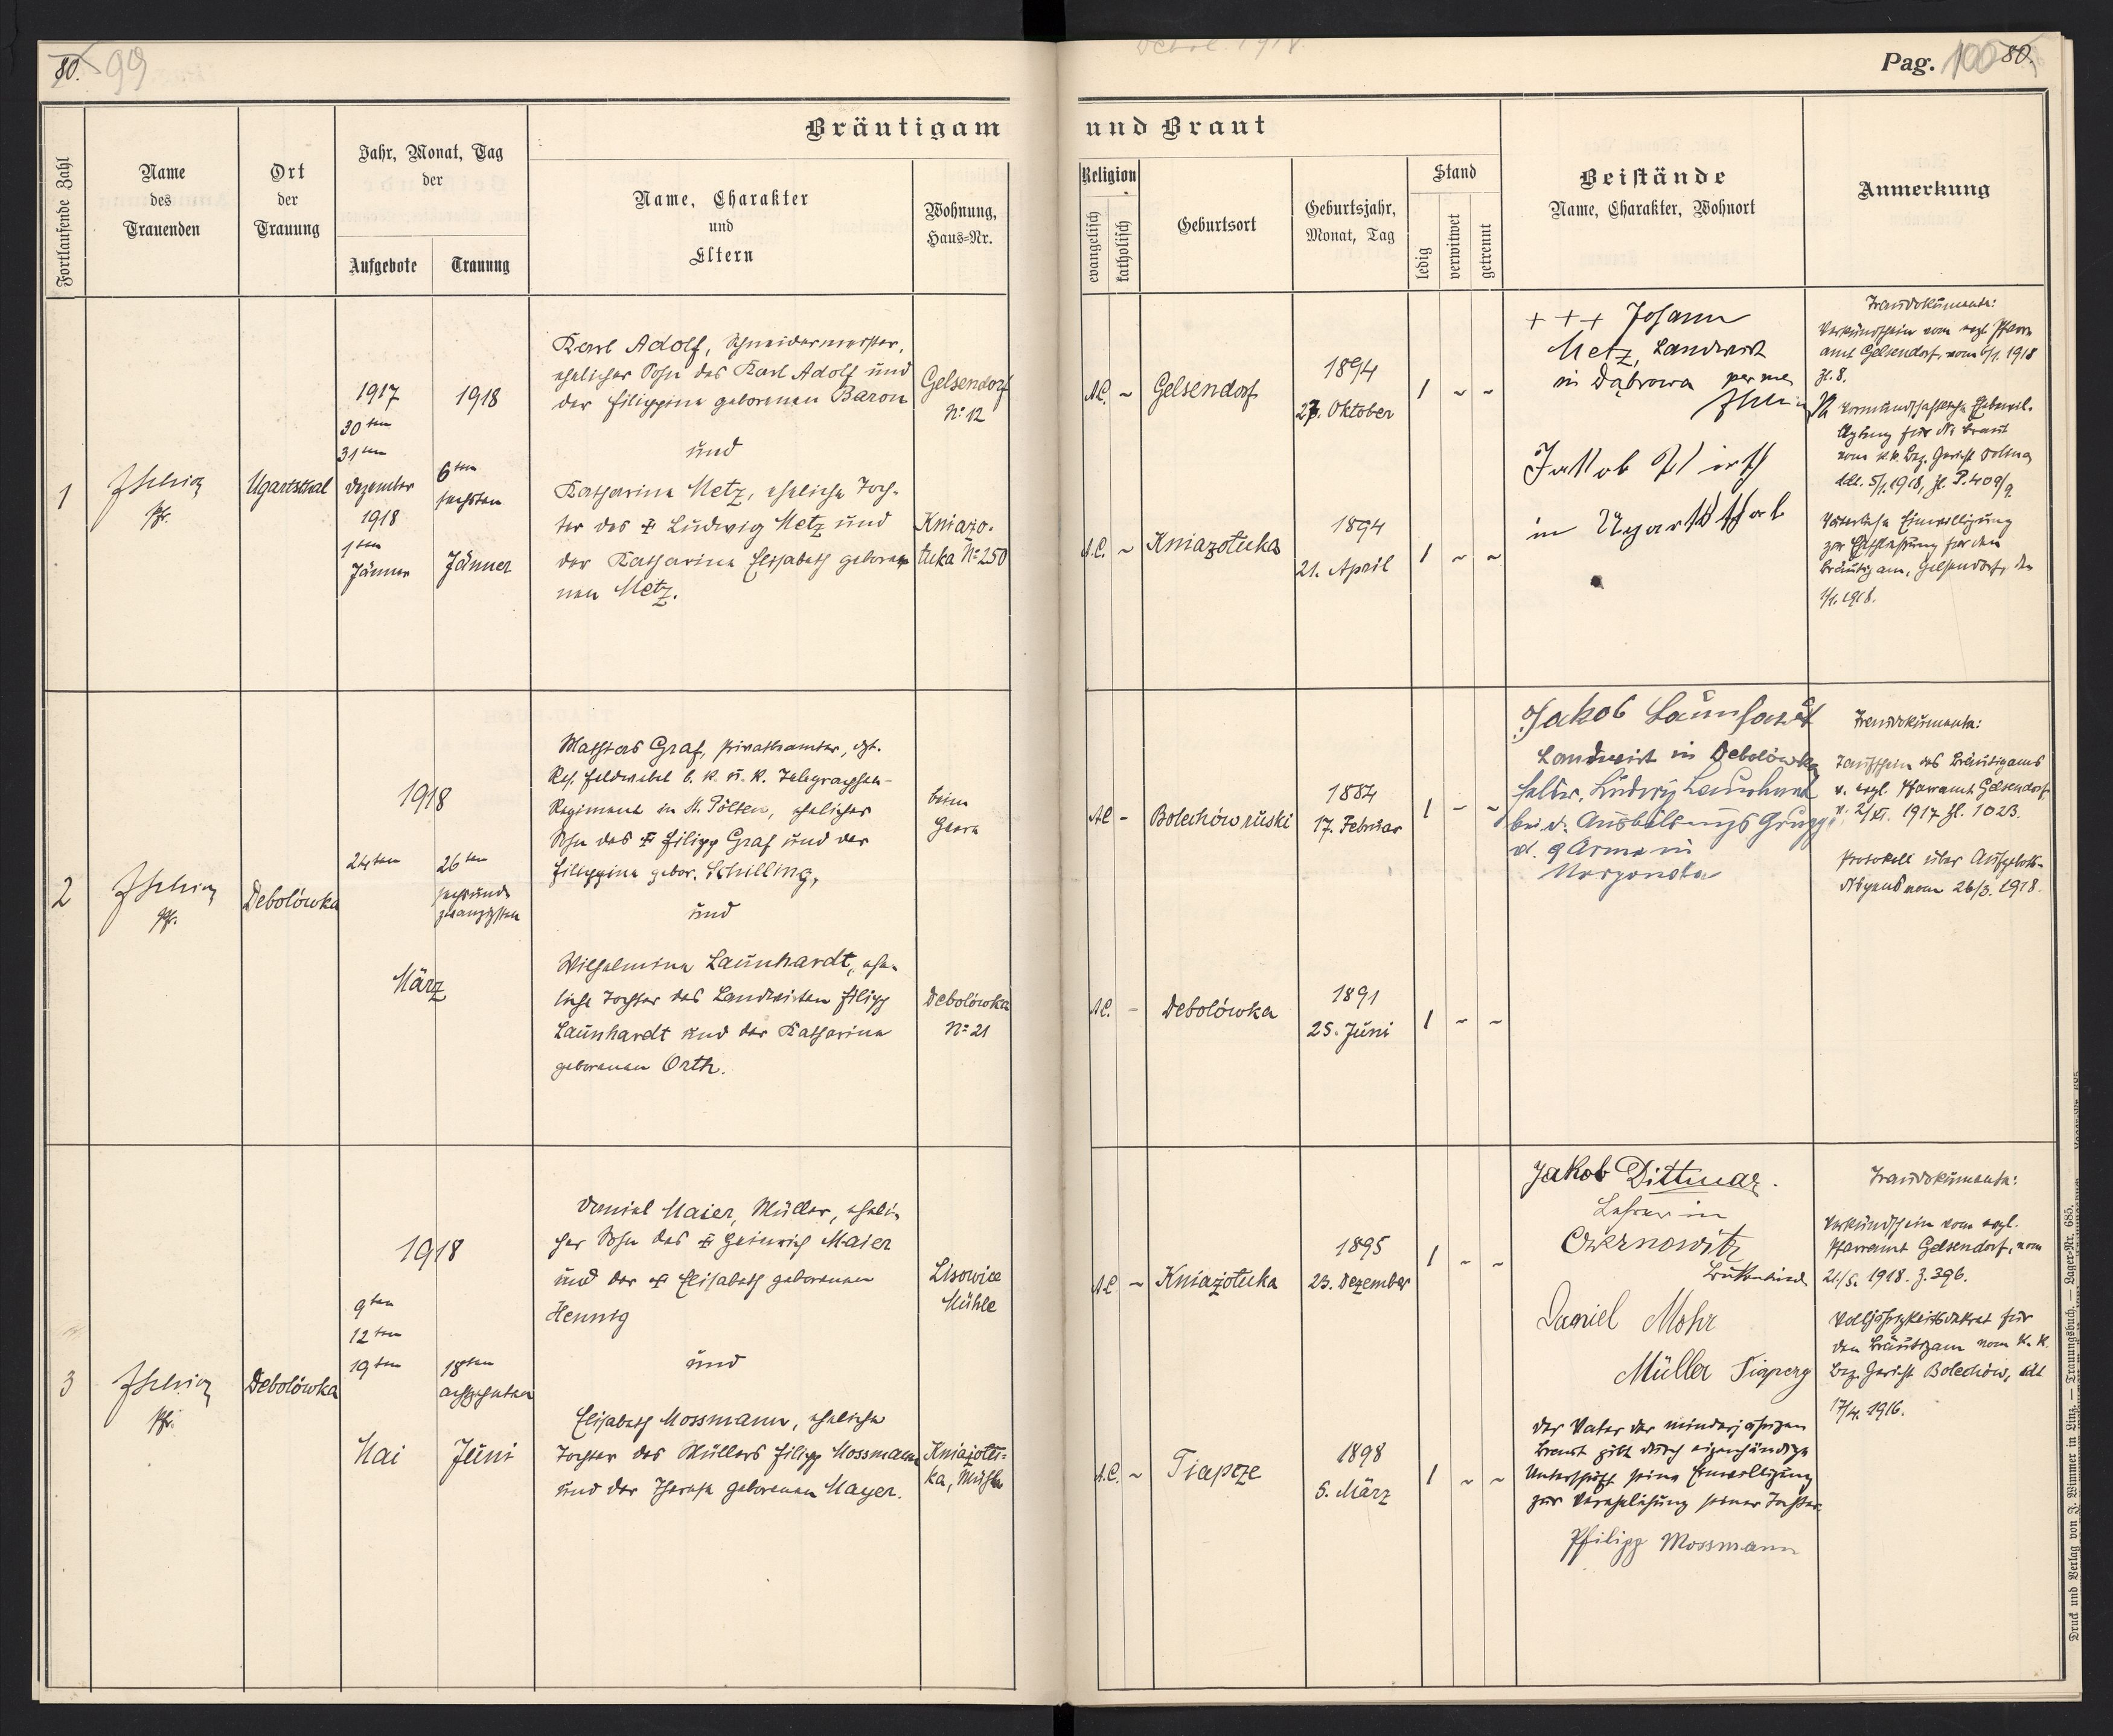 80. 99
Pag. 100 80.
Bräutigam und Braut
Fortlaufende Zahl
Name des Trauenden
Ort der Trauung
Jahr, Monat, Tag der
Aufgebote
Trauung
Name, Charakter und Eltern
Wohnung, Haus=Nr.
Religion
evangelisch
katholisch
Geburtsort
Geburtsjahr, Monat, Tag
Stand
ledig
verwitwet
getrennt
Beistände
Name, Charakter, Wohnort
Anmerkung
1
Pfr.
Ugartsthal
1917
30ten
31ten
Dezember
1918
1ten
Jänner
1918
6ten
sechsten
Jänner
Karl Adolf, Schneidermeister,
ehelicher Sohn des Karl Adolf und
der Filippine geborenen Baron
und
Katharina Metz, eheliche Toch-
ter des ✠ Ludwig Metz und
der Katharina Elisabeth gebore-
nen Metz.
Gelsendorf
No 12
Kniazo-
łuka No 250
A.C. ~
Gelsendorf
1894
27. Oktober
1 ~ ~
A.C. ~
Kniazołuka
1894
21. April
1 ~ ~
+ + + Johann
Metz, Landwirt
in Dąbrowa per me
Jakob
in Ugartsthal
Traudokumente:
Verkündschein vom evgl. Pfarr-
amt Gelsendorf, vom 6/1. 1918
Zl. 8.
Vormundschaftliche Ehebewil-
ligung für die Braut
vom k. k. Bez. Gericht Dolina
ddt. 5/1. 1918, Zl. P. 409/9
Väterliche Einwilligung
zur Eheschließung für den
Bräutigam, Gelsendorf, den
1/1. 1918.
2
Pfr.
Debolówka
1918
24ten
26ten
sechsund-
zwanzigsten
März
Mathias Graf, Privatbeamter, dzt.
Res. Feldwebel b. k. u. k. Telegraphen-
Regiment in St. Pölten, ehelicher
Sohn des ✠ Filipp Graf und der
Filippine gebor. Schilling,
und
Wilhelmine Launhardt, ehe-
liche Tochter des Landwirten Filipp
Launhardt und der Katharina
geborenen Orth.
beim
Heere
Debolówka
No 21
A.C. -
Bolechów ruski
1884
17. Februar
1 - ~
A.C. -
Debolówka
1891
25. Juni
1 ~ ~
Jakob Launhardt
Landwirt in Debolówka
Ludwig Launhardt
bei d. Ausbildungs Gruppe
d. 9 Armee in
Traudokumente:
Taufschein des Bräutigams
v. evgl. Pfarramt Gelsendorf
v. 2/XI. 1917 Zl. 1023.
Protokoll über Aufgebots-
Dispens vom 26/3. 1918.
3
Pfr.
Debolówka
1918
9ten
12ten
19ten
Mai
18ten
achtzehnten
Juni
Daniel Maier, Müller, eheli-
cher Sohn des ✠ Heinrich Maier
und der ✠ Elisabeth geborenen
Hennig
und
Elisabeth Mossmann, eheliche
Tochter des Müllers Filipp Mossmann
und der Therese geborenen Mayer.
Lisowice
Mühle
Kniazołu-
ka, Mühle
A.C. ~
Kniażołuka
1895
23. Dezember
1 ~ ~
A.C. ~
Tiapcze
1898
5. März
1 ~ ~
Jakob Dittmar.
Lehrer in
Czernowitz
Daniel Mohr
Müller
Der Vater der minderjährigen
Braut gibt durch eigenhändige
Unterschrift seine Einwilligung
zur Verehelichung seiner Tochter.
Philipp Mossmann
Traudokumente:
Verkündschein vom evgl.
Pfarramt Gelsendorf, vom
21/5. 1918. Z. 396.
Volljährigkeitsdekret für
den Bräutigam vom k. k.
Bez. Gericht Bolechów, ddt
17/4. 1916.
Druck und Verlag von J. Wimmer in Linz. — Trauungsbuch. — Lager-Nr. 685.